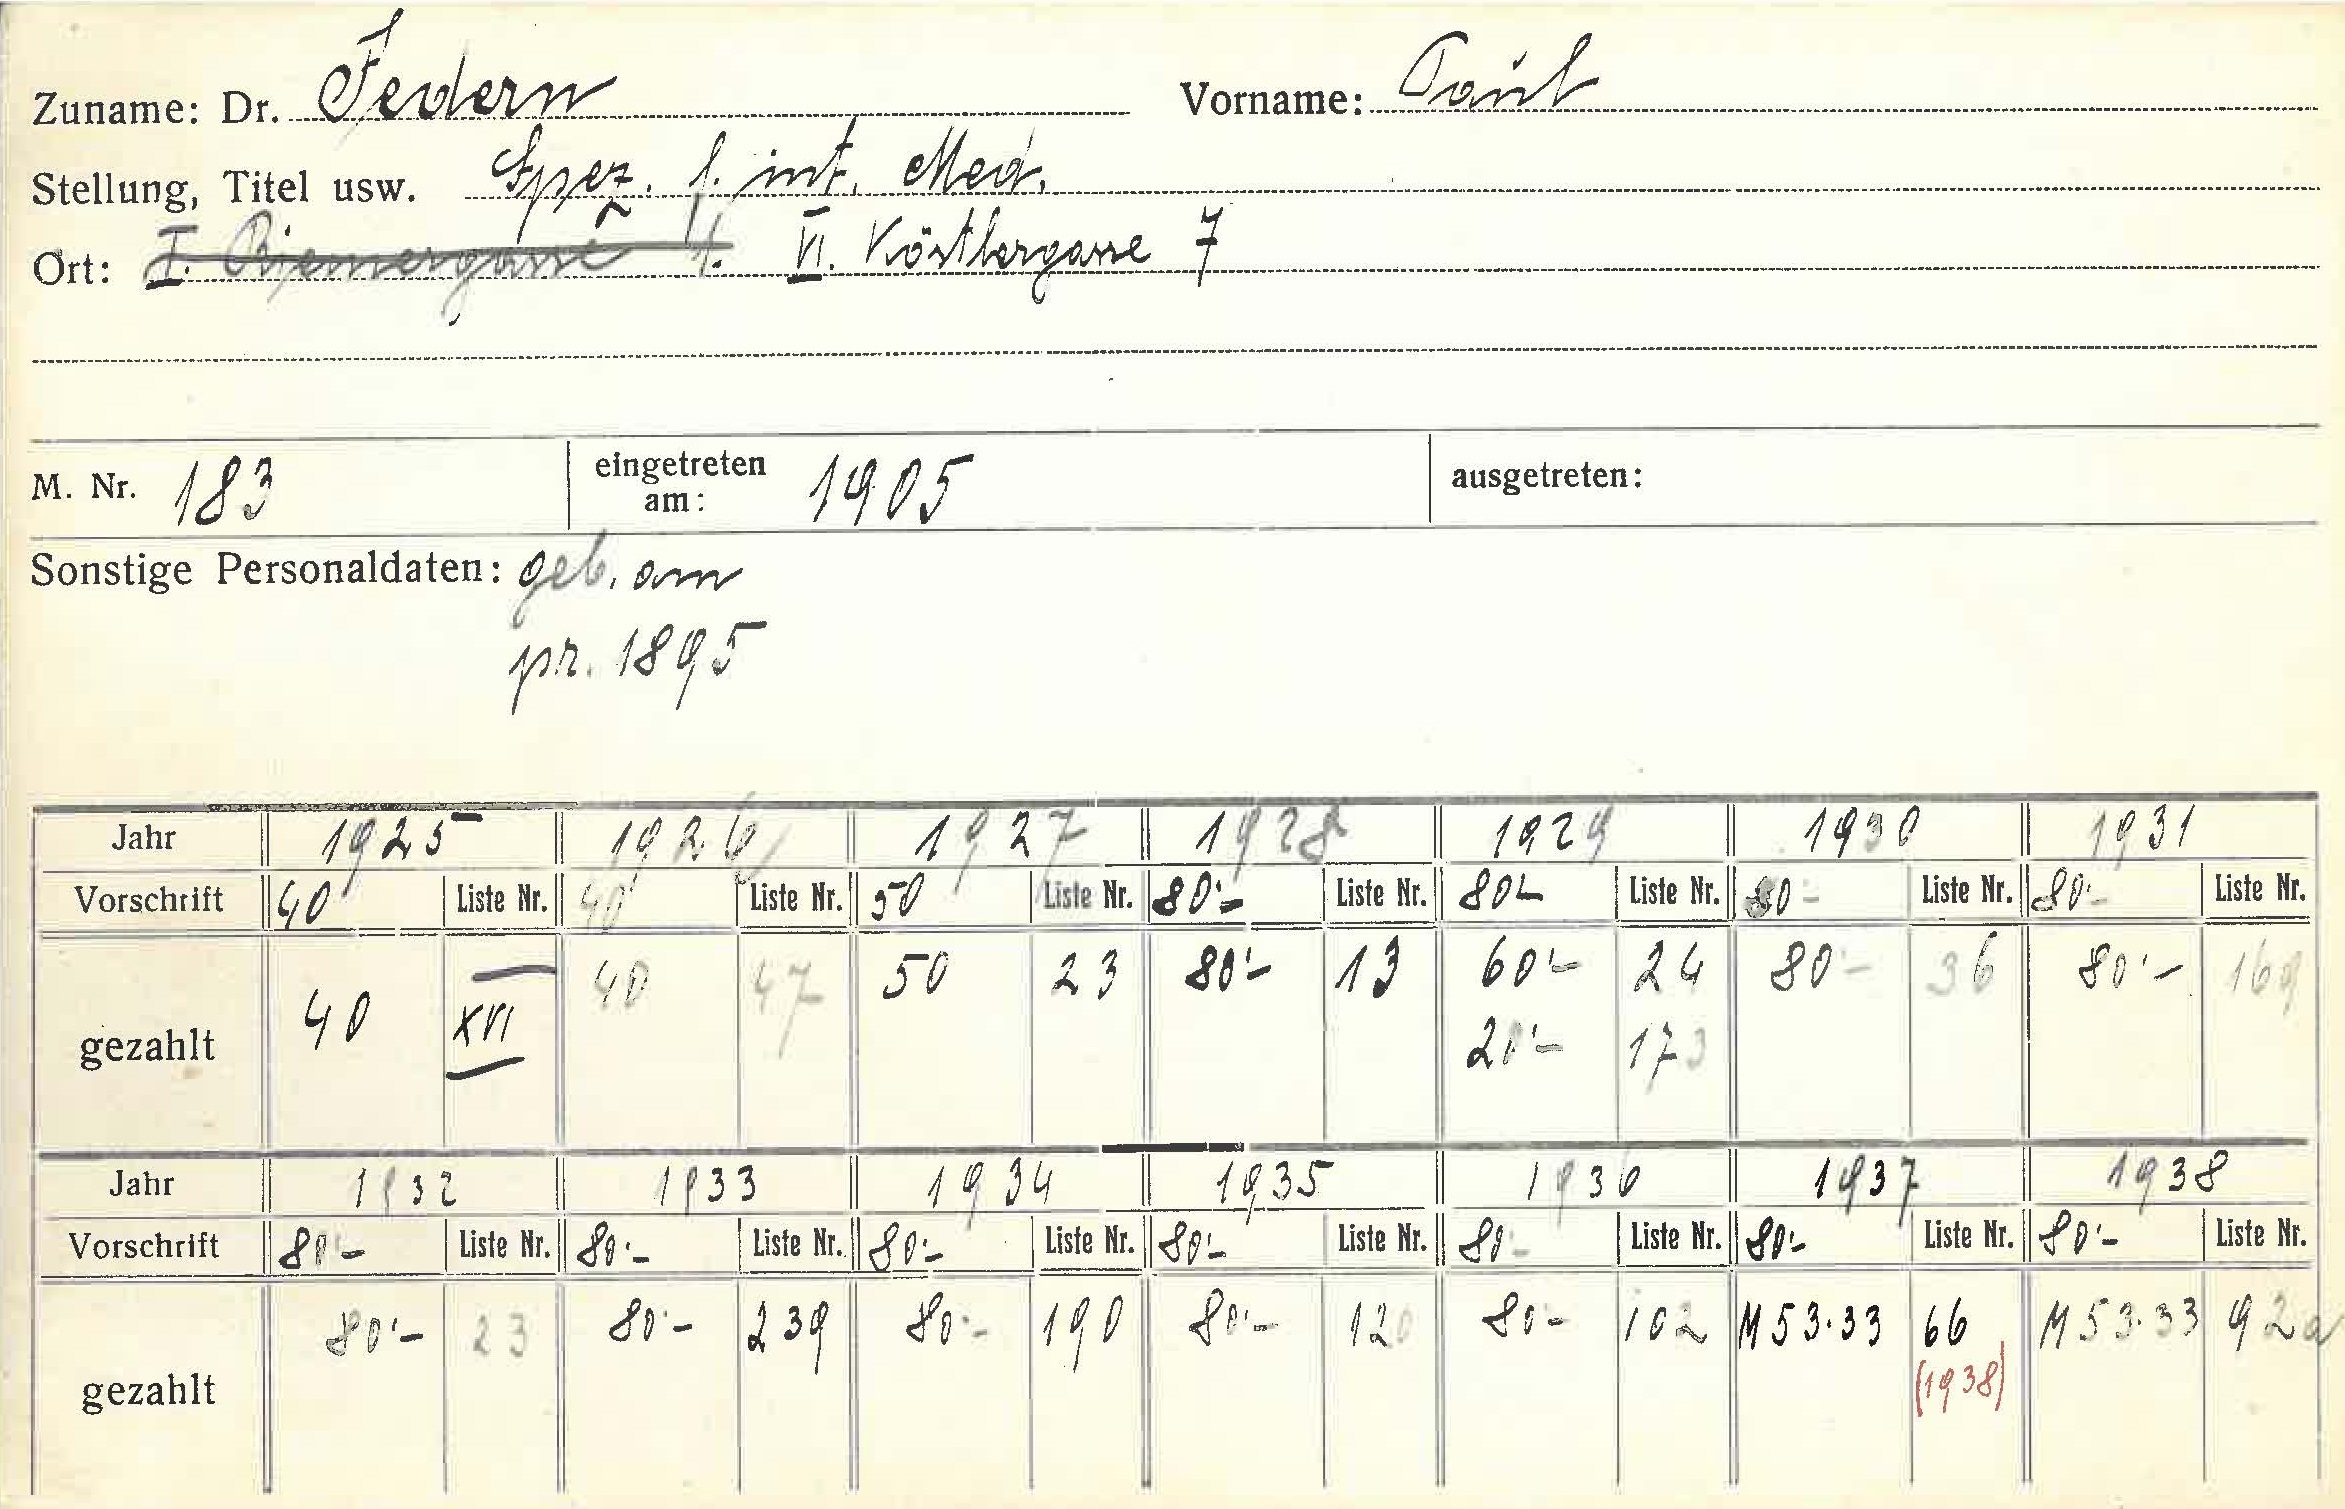 Zuname: Dr. Federn Vorname: Paul
Stellung, Titel usw. Spez. f. int. Med.
Ort: I. Riemergasse 1. VI. Köstlergasse 7
M. Nr. 183 eingetreten am: 1905 ausgetreten:
Sonstige Personaldaten: geb. am
pr. 1895
Jahr 1925 1926 1927 1928 1929 1930 1931
Vorschrift 40 Liste Nr. 40 Liste Nr. 50 Liste Nr. 80·- Liste Nr. 80·- Liste Nr. 80·- Liste Nr. 80·- Liste Nr.
gezahlt 40 XVI 40 47 50 23 80·- 13 60·- 24 80·- 36 80·- 169
20·- 173
Jahr 1932 1933 1934 1935 1936 1937 1938
Vorschrift 80·- Liste Nr. 80·- Liste Nr. 80·- Liste Nr. 80·- Liste Nr. 80·- Liste Nr. 80·- Liste Nr. 80·- Liste Nr.
gezahlt 80·- 23 80·- 239 80·- 190 80·- 120 80·- 102 M 53·33 66 M 53·33 92a
(1938)